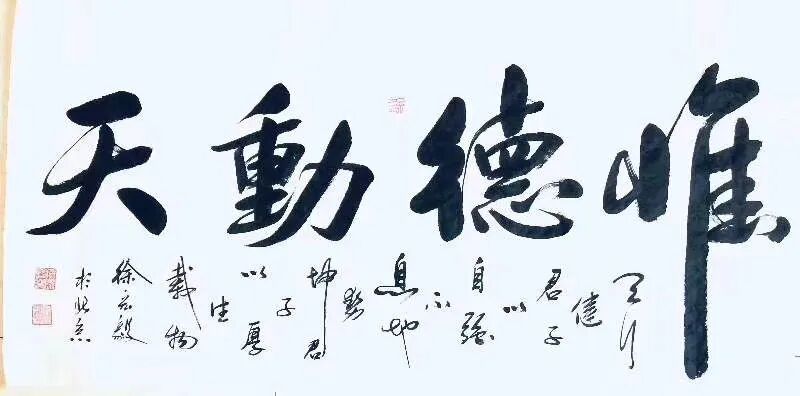 惟德動天
天行
健
君子
以
自强
不
息地
勢
坤君
子
以厚
德
載物
徐 毅
於北京